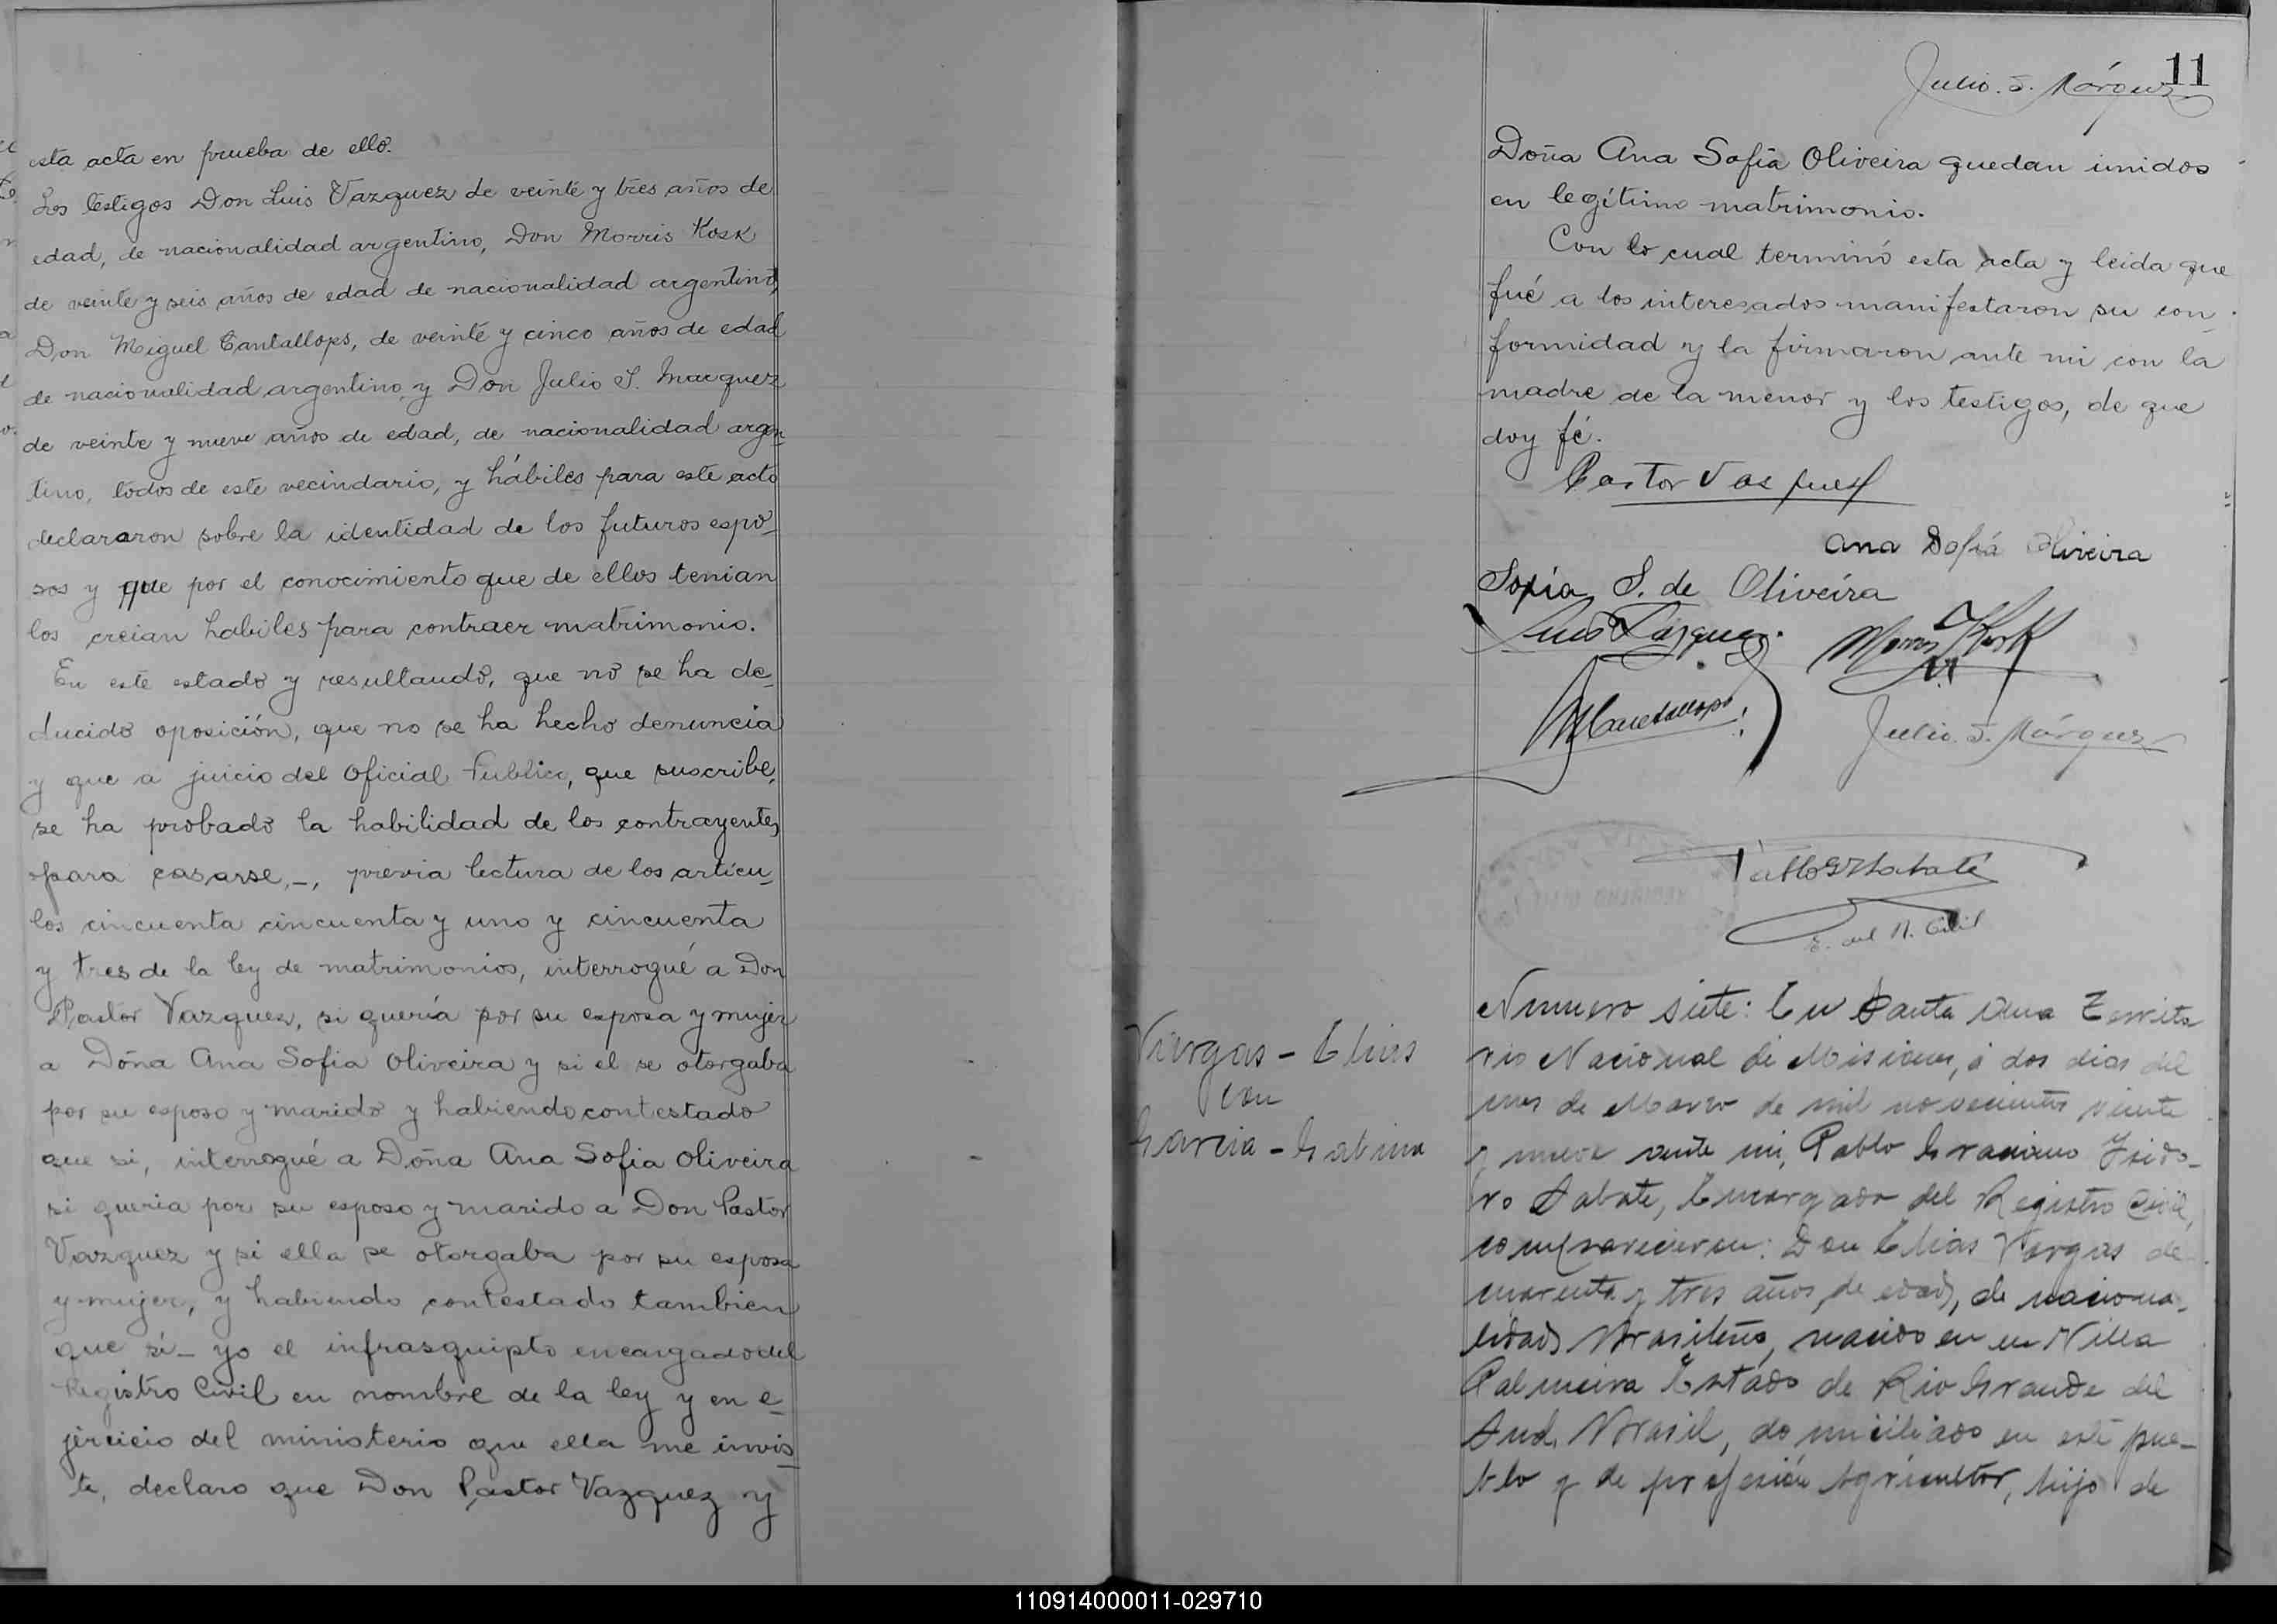 esta acta en prueba de ello.
Los testigos Don Luis Vazquez de veinte y tres años de
edad, de nacionalidad argentino, Don Morris Kosk
de veinte y seis años de edad de nacionalidad argentino,
Don Miguel Cantallops, de veinte y cinco años de edad
de nacionalidad argentino, y Don Julio S. Marquez
de veinte y nueve años de edad, de nacionalidad argen-
tino, todos de este vecindario, y hábiles para este acto
declararon sobre la identidad de los futuros espo-
sos y que por el conocimiento que de ellos tenian
los creian habiles para contraer matrimonio.
En este estado y resultando, que no se ha de-
ducido oposición, que no se ha hecho denuncia
y que a juicio del Oficial Publico, que suscribe,
se ha probado la habilidad de los contrayentes
para casarse,-, previa lectura de los articu-
los cincuenta cincuenta y uno y cincuenta
y tres de la ley de matrimonios, interrogué a Don
Pastor Vazquez, si quería por su esposa y mujer
a Doña Ana Sofia Oliveira y si el se otorgaba
por su esposo y marido y habiendo contestado
que si, interrogué a Doña Ana Sofia Oliveira
si queria por su esposo y marido a Don Pastor
Vazquez y si ella se otorgaba por su esposa
y mujer, y habiendo contestado tambien
que si- yo el infrasquipto encargado del
Registro Civil en nombre de la ley y en e-
jercicio del ministerio que ella me invis-
te, declaro que Don Pastor Vazquez y
11
Julio. S. Márquez
Doña Ana Sofía Oliveira quedan unidos
en legítimo matrimonio.
Con lo cual terminó esta acta y leida que
fué a los interesados manifestaron su con-
formidad y la firmaron ante mi con la
madre de la menor y los testigos, de que
doy fé.
Pastor Vasquez
Ana Sofiá Oliveira
Sofia S. de Oliveira
Luis Vazquez. Morris Kosk
MCantallops
Julio. S. Márquez
Pablo G I Sabaté
E. del R. Civil
Vargas - Elias
con
Garcia - Gabina
Numero siete: En Santa Ana Territo
rio Nacional de Misiones, á dos dias del
mes de Marzo de mil novecientos veinte
y nueve ante mi, Pablo Graciano Isido-
ro Sabate, Encargado del Registro Civil,
comparecieron: Don Elias Vargas de
cuarenta y tres años de edad, de naciona-
lidad Brasileño, nacido en en Villa
Palmeira Estado de Rio Grande del
Sud, Brasil, domiciliado en este pue-
blo y de profesión Agricultor, hijo de
110914000011-029710